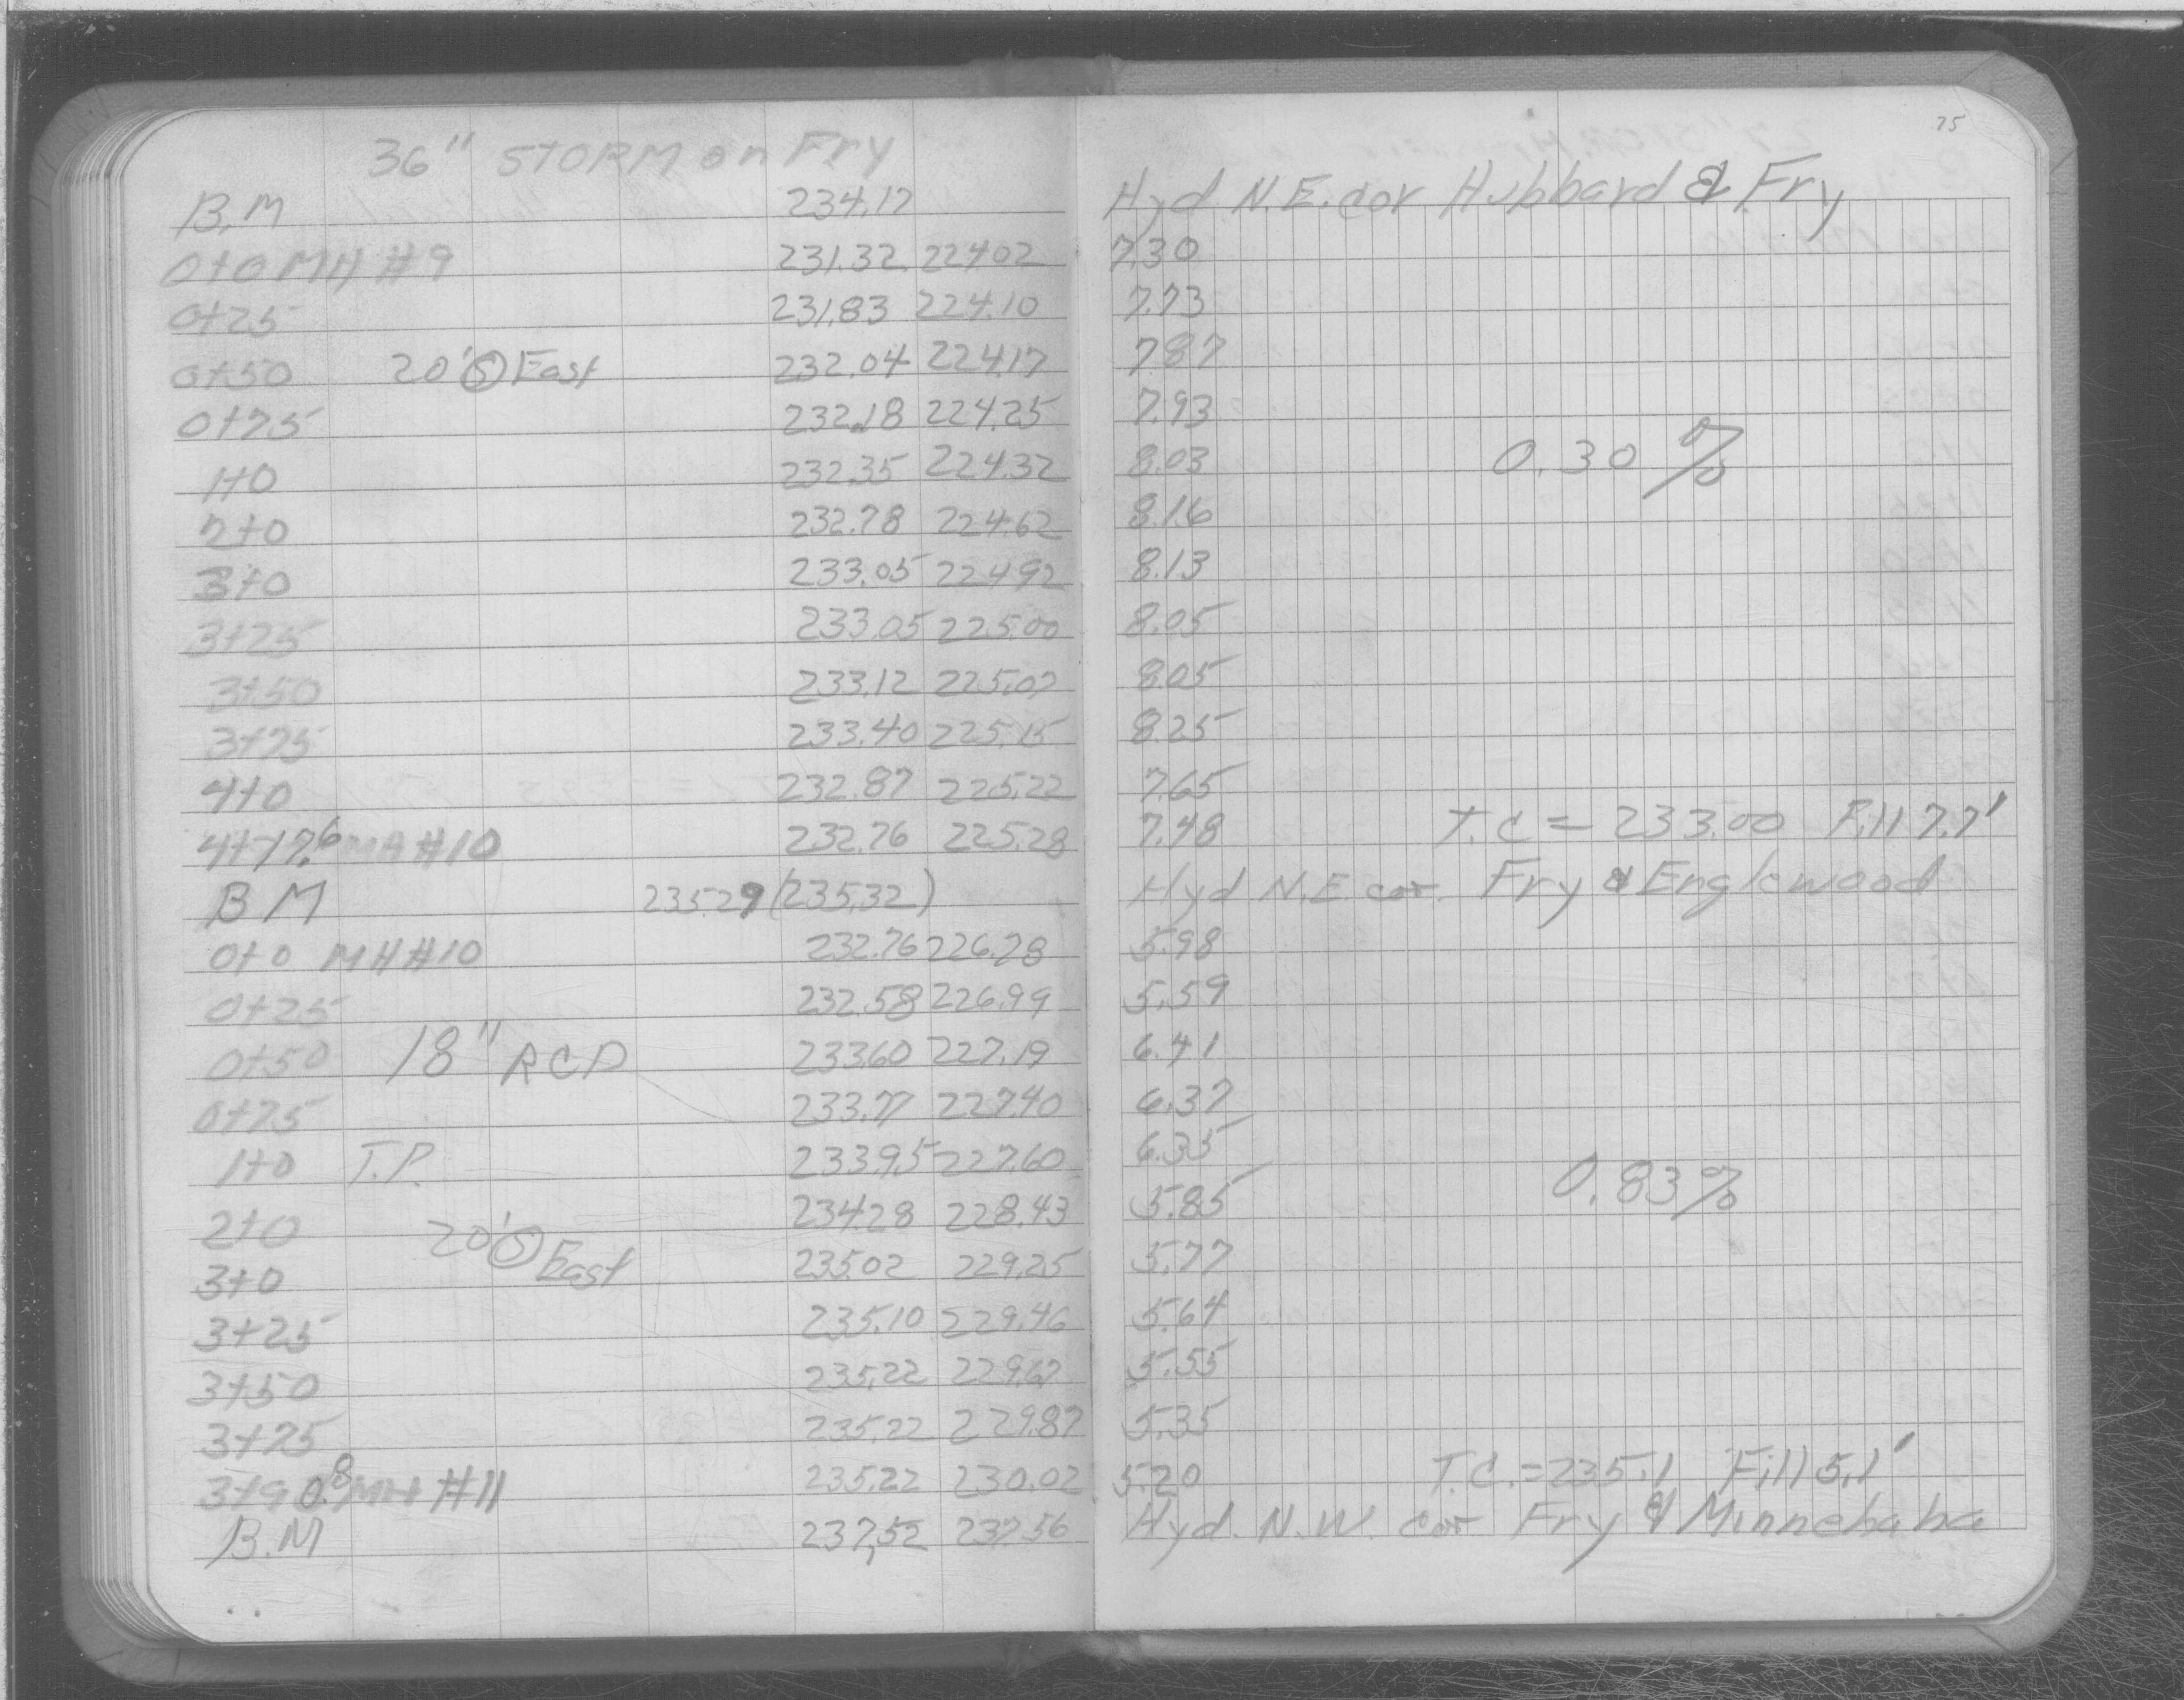 75
36" STORM on Fry
B.M 234.17 Hyd N.E. cor Hubbard & Fry
0+0 MH #9 231.32 224.02 7.30
0+25 231.83 224.10 7.73
0+50 20' Ⓢ East 232.04 224.17 7.87
0+75 232.18 224.25 7.93
1+0 232.35 224.32 8.03 0.30 %
2+0 232.78 224.62 8.16
3+0 233.05 224.92 8.13
3+25 233.05 225.00 8.05
3+50 233.12 225.07 8.05
3+75 233.40 225.15 8.25
4+0 232.87 225.22 7.65
4+17.6 MH #10 232.76 225.28 7.48 T.C = 233.00 Fill 7.7'
B M 235.29 (235.32) Hyd N.E. cor. Fry & Englewood
0+0 MH #10 232.76 226.78 5.98
0+25 232.58 226.99 5.59
0+50 18" RCP 233.60 227.19 6.41
0+75 233.77 227.40 6.37
1+0 T.P. 233.95 227.60 6.35
2+0 234.28 228.43 5.85 0.83%
3+0 20' Ⓢ East 235.02 229.25 5.77
3+25 235.10 229.46 5.64
3+50 235.22 229.67 5.55
3+75 235.22 229.87 5.35
3+90.8 MH #11 235.22 230.02 5.20 T.C. = 235.1 Fill 5.1'
B.M 237.52 237.56 Hyd. N.W. cor Fry & Minnehaha